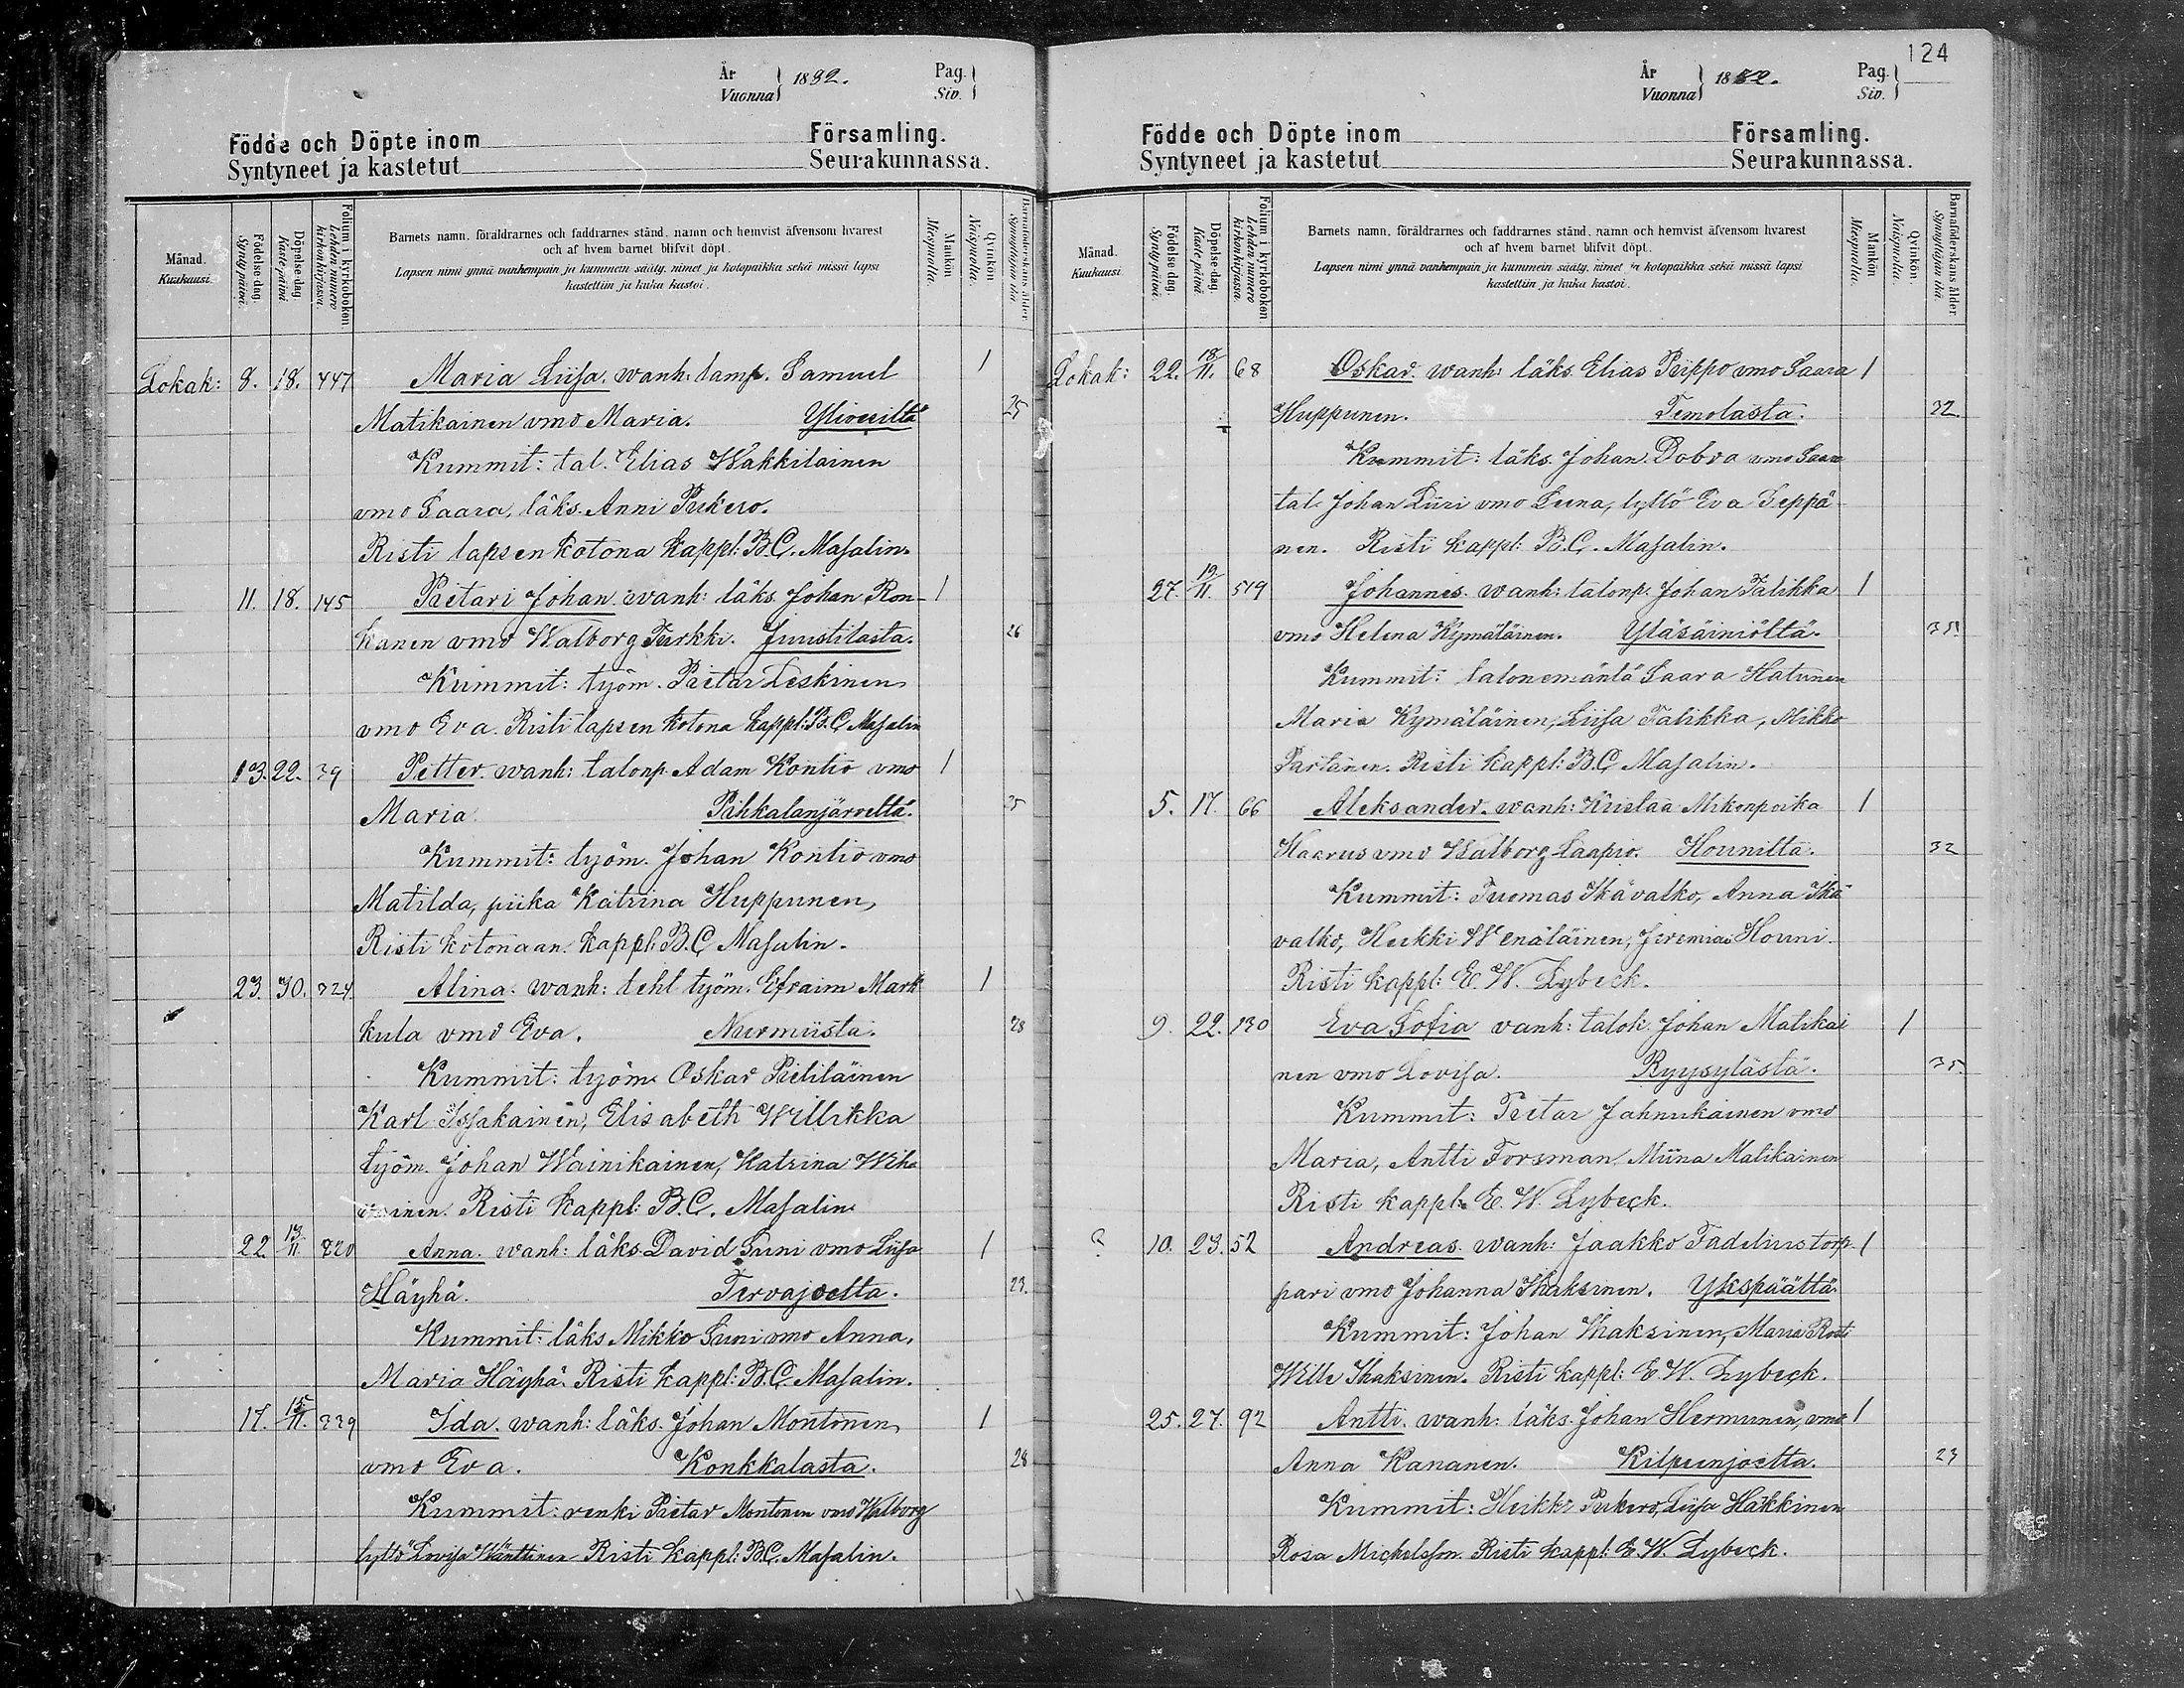 År
Vuonna } 1892. Pag.
Siv. }
Födde och Döpte inom Församling.
Syntyneet ja kastetut Seurakunnassa.
Månad. Kuukausi.
Födelse-dag. Syntypäivä.
Döpelse-dag. Kastepäivä
Folium i kyrkoboken Lehden numero kirkonkirjassa.
Barnets namn, föräldrarnes och faddrarnes stånd, namn och hemvist äfvensom hvarest
och af hvem barnet blifvit döpt.
Lapsen nimi ynnä vanhempain ja kummein sääty, nimet ja kotopaikka sekä missä lapsi
kastettiin ja kuka kastoi.
Mankön Miespuolia.
Qvinkön Naispuolia.
Barnaföderskans ålder. Synnyttäjän ikä.
Lokak: 8. 18. 447 Maria Liisa. wanh: lamp. Samuel 1
Matikainen vmo Maria. Ylivesiltä 25
Kummit: tal. Elias Wakkilainen
vmo Saara, läks. Anni Pukero.
Risti lapsen kotona kappl: B. C. Masalin.
11. 18. 145 Pietari Johan. wanh: läks Johan Ron- 1
kanen vmo Walborg Turkki. Juustilasta. 26
Kummit: työm. Pietar Leskinen
vmo Eva. Risti lapsen kotona kappl: B. C. Masalin
13. 22. 39 Petter. wanh: talonp. Adam Kontio vmo 1
Maria Pihkalanjärveltä. 25
Kummit: työm. Johan Kontio vmo
Matilda, piika Katrina Huppunen,
Risti kotonaan. kappl: B. C. Masalin.
23. 30. 324 Alina. wanh: tehl työm. Efraim Mark 1
kula vmo Eva. Nurmiista. 28
Kummit: työm. Oskar Pieliläinen
Karl Issakainen, Elisabeth Willikka
työm. Johan Wainikainen, Katrina Wiha
inen. Risti kappl: B. C. Masalin
22 13/11 320 Anna. wanh: läks. David Suni vmo Liisa 1
Häyhä. Tervajoelta. 23.
Kummit: läks Mikko Suni vmo Anna,
Maria Häyhä. Risti kappl: B. C. Masalin.
17. 15/11. 339 Ida. wanh: läks. Johan Montonen 1
vmo Eva. Konkkalasta. 28
Kummit: renki Pietar Montonen vmo Walborg
tyttö Lovisa Wänttinen Risti kappl: B. C. Masalin.
124
År
Vuonna } 1882. Pag.
Siv. }
Födde och Döpte inom Församling.
Syntyneet ja kastetut Seurakunnassa.
Månad. Kuukausi
Födelse-dag. Syntypäivä.
Döpelse-dag. Kastepäivä
Folium i kyrkoboken Lehden numero kirkonkirjassa.
Barnets namn, föräldrarnes och faddrarnes stånd, namn och hemvist äfvensom hvarest
och af hvem barnet blifvit döpt.
Lapsen nimi ynnä vanhempain ja kummein sääty, nimet ja kotopaikka sekä missä lapsi
kastettiin ja kuka kastoi.
Mankön Miespuolia.
Qvinkön. Naispuolia.
Barnaföderskans ålder. Synnyttäjän ikä.
Lokak: 22. 18/11. 68 Oskar. wanh: läks. Elias Piippo vmo Saara 1
Huppunen. Temolasta. 32.
Kummit: läks. Johan Dobra vmo Saara
tal. Johan Liiri vmo Leena, tyttö Eva Seppä-
nen. Risti kappl: B. C. Masalin.
27. 19/11. 519 Johannes. wanh: talonp. Johan Talikka 1
vmo Helena Kymäläinen. Yläsäiniöltä. 35.
Kummit: talonemäntä Saara Hatunen
Maria Kymäläinen, Liisa Talikka, Mikko
Partanen. Risti kappl: B. C. Masalin.
5. 17. 66 Aleksander. wanh: Kustaa Mikonpoika 1
Haarus vmo Walborg Laapio. Hounilta. 32
Kummit: Tuomas Ikävalko, Anna Ikä
valko, Heikki Wenäläinen, Jeremias Houni.
Risti kappl: E. W. Lybeck.
9. 22. 130 Eva Sofia vanh: talok. Johan Matikai 1
nen vmo Lovisa. Ryysylästä. 35.
Kummit: Pietar Jahnukainen vmo
Maria, Antti Forsman, Miina Matikainen
Risti kappl: E. W. Lybeck.
? 10. 23. 52 Andreas. wanh: Jaakko Fadelius torp- 1
pari vmo Johanna Ihaksinen. Ykspäältä.
Kummit: Johan Ihaksinen, Maria Rosti
Wille Ihaksinen. Risti kappl: E. W. Lybeck.
25. 27. 92 Antti. wanh: läks. Johan Hermunen, vmo 1
Anna Kananen. Kilpeenjoelta. 23
Kummit: Heikki Pukero, Liisa Häkkinen
Rosa Michelsson. Risti kappl: E. W. Lybeck.